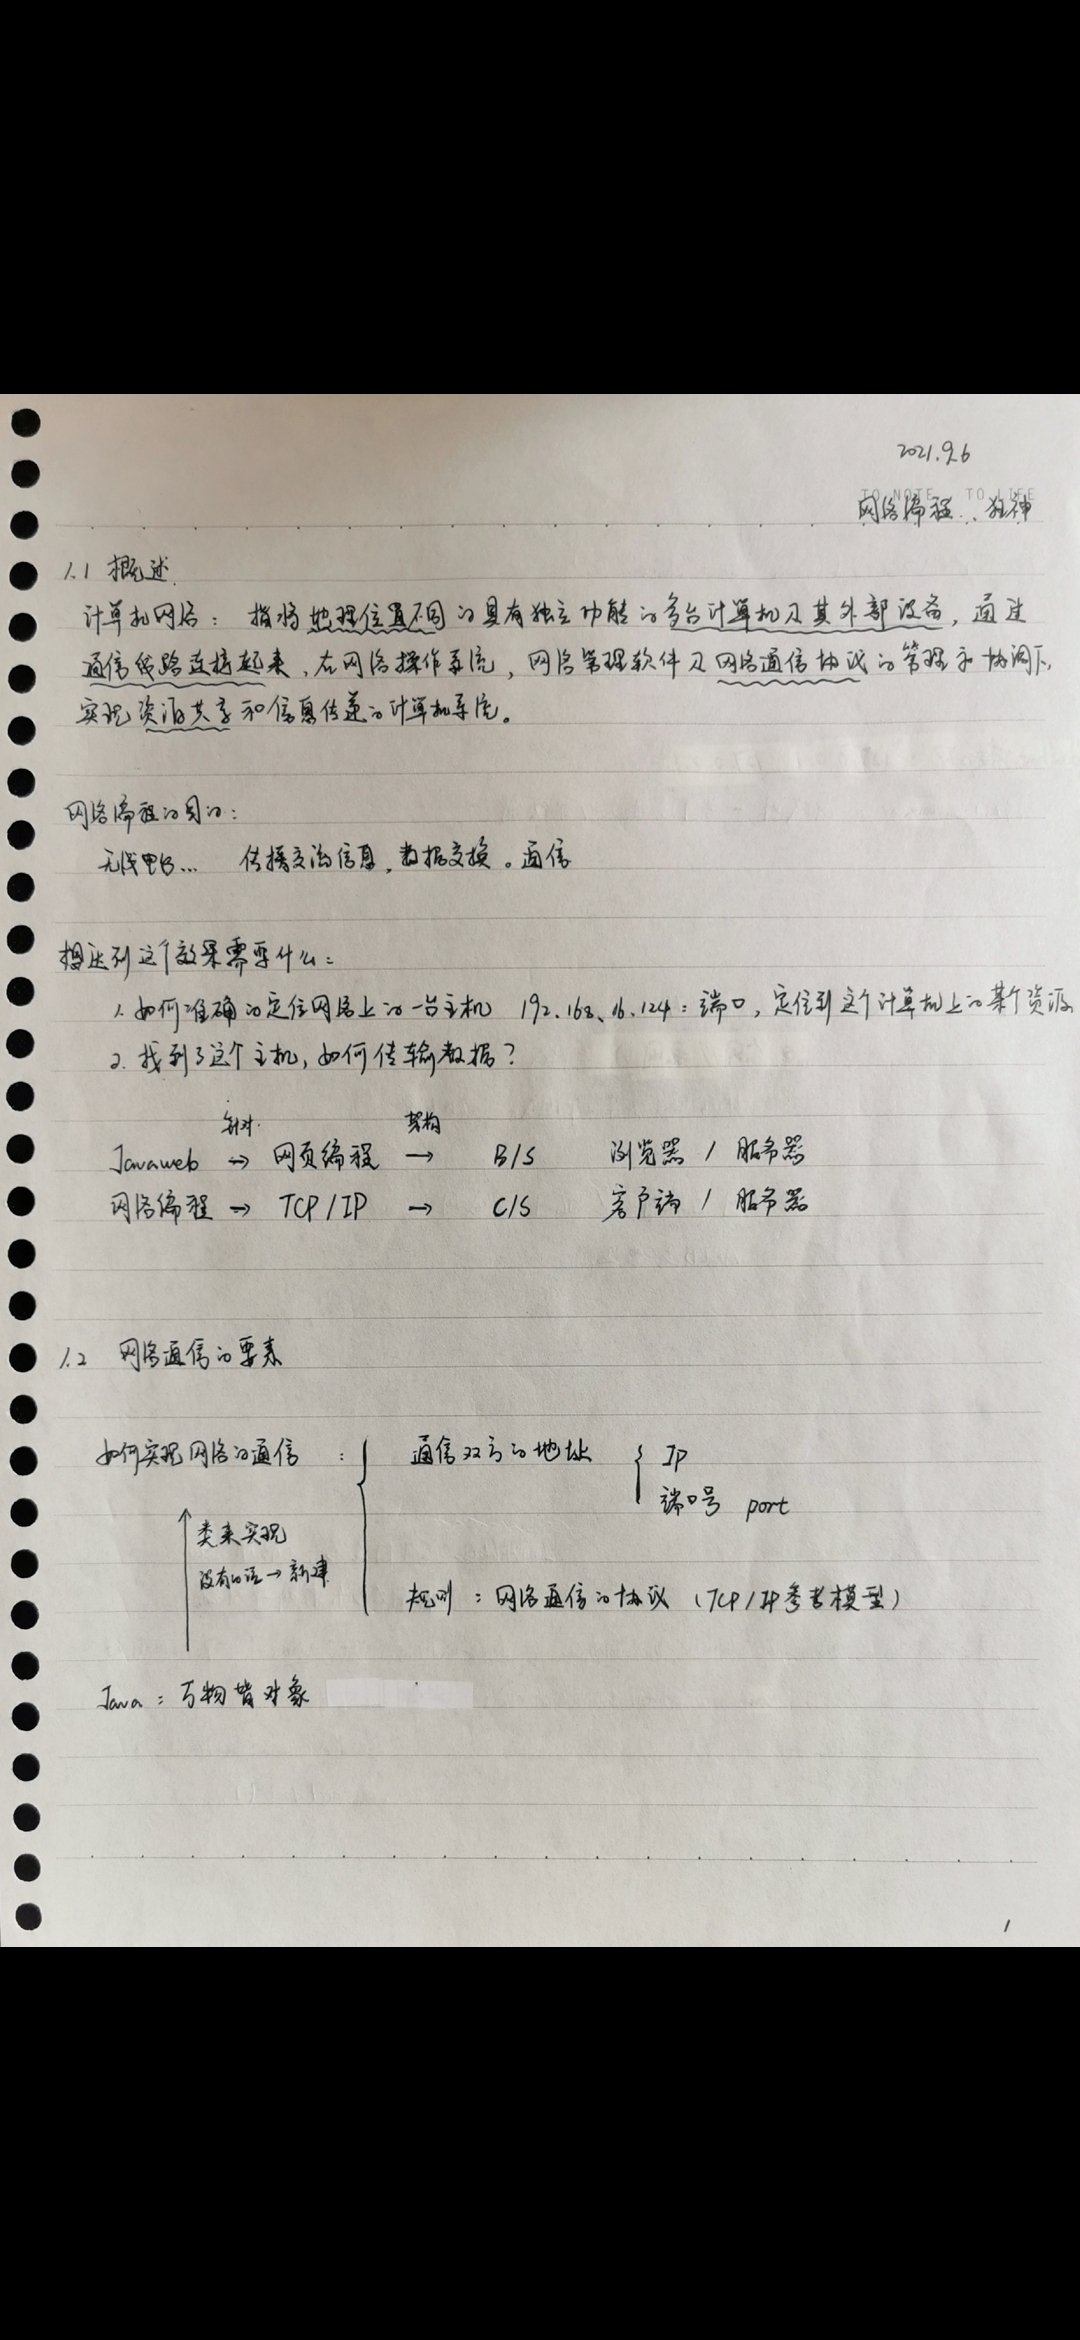 2021.9.6
TO NOTE TO LIFE
网络编程 狂神
1.1 概述
计算机网络：指将地理位置不同的具有独立功能的多台计算机及其外部设备，通过
通信线路连接起来，在网络操作系统，网络管理软件及网络通信协议的管理和协调下，
实现资源共享和信息传递的计算机系统。
网络编程的目的：
无线电台... 传播交流信息，数据交换。通信
想达到这个效果需要什么：
1. 如何准确的定位网络上的一台主机 192.168.16.124：端口，定位到这个计算机上的某个资源
2. 找到了这个主机，如何传输数据？
针对 架构
Javaweb → 网页编程 → B/S 浏览器 / 服务器
网络编程 → TCP/IP → C/S 客户端 / 服务器
1.2 网络通信的要素
如何实现网络的通信： 通信双方的地址 IP
端口号 port
类来实现
没有的话→新建
规则：网络通信的协议（TCP/IP参考模型）
Java：万物皆对象
1